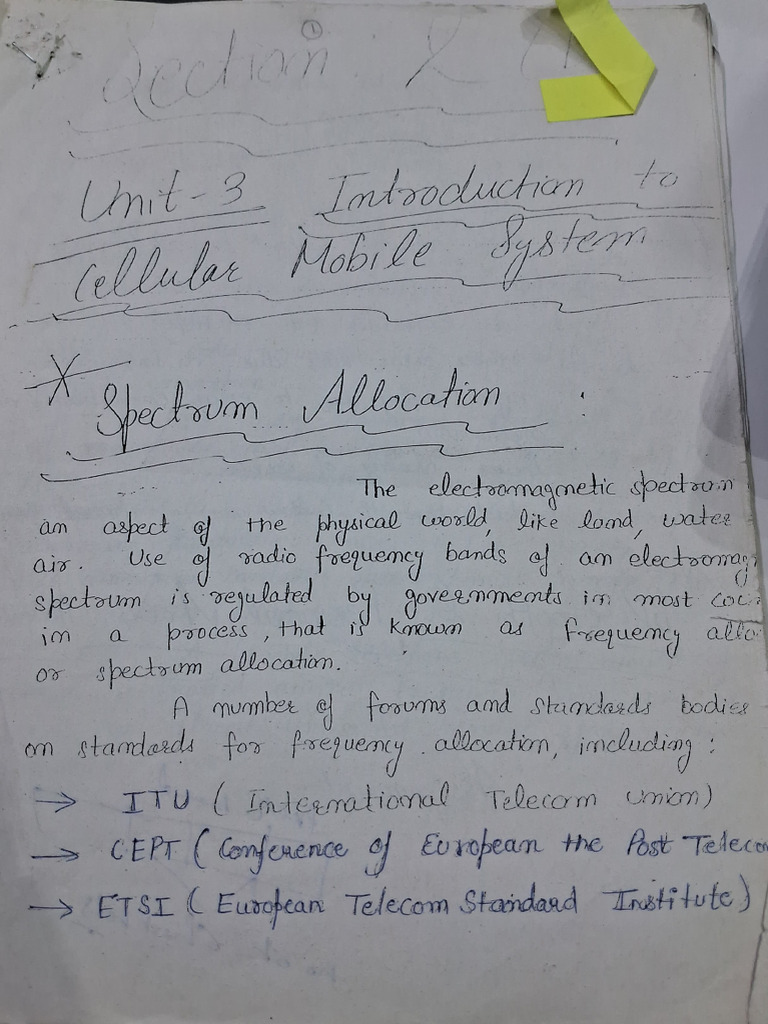 ①
Section :
Unit-3 Introduction to
Cellular Mobile System
* Spectrum Allocation :
The electromagnetic spectrum
an aspect of the physical world, like land, water
air. Use of radio frequency bands of an electromag
spectrum is regulated by governments in most cou
in a process, that is known as frequency allo
or spectrum allocation.
A number of forums and standards bodies
on standards for frequency allocation, including :
→ ITU ( International Telecom Union)
→ CEPT ( Conference of European the Post Teleco
→ ETSI ( European Telecom Standard Institute)